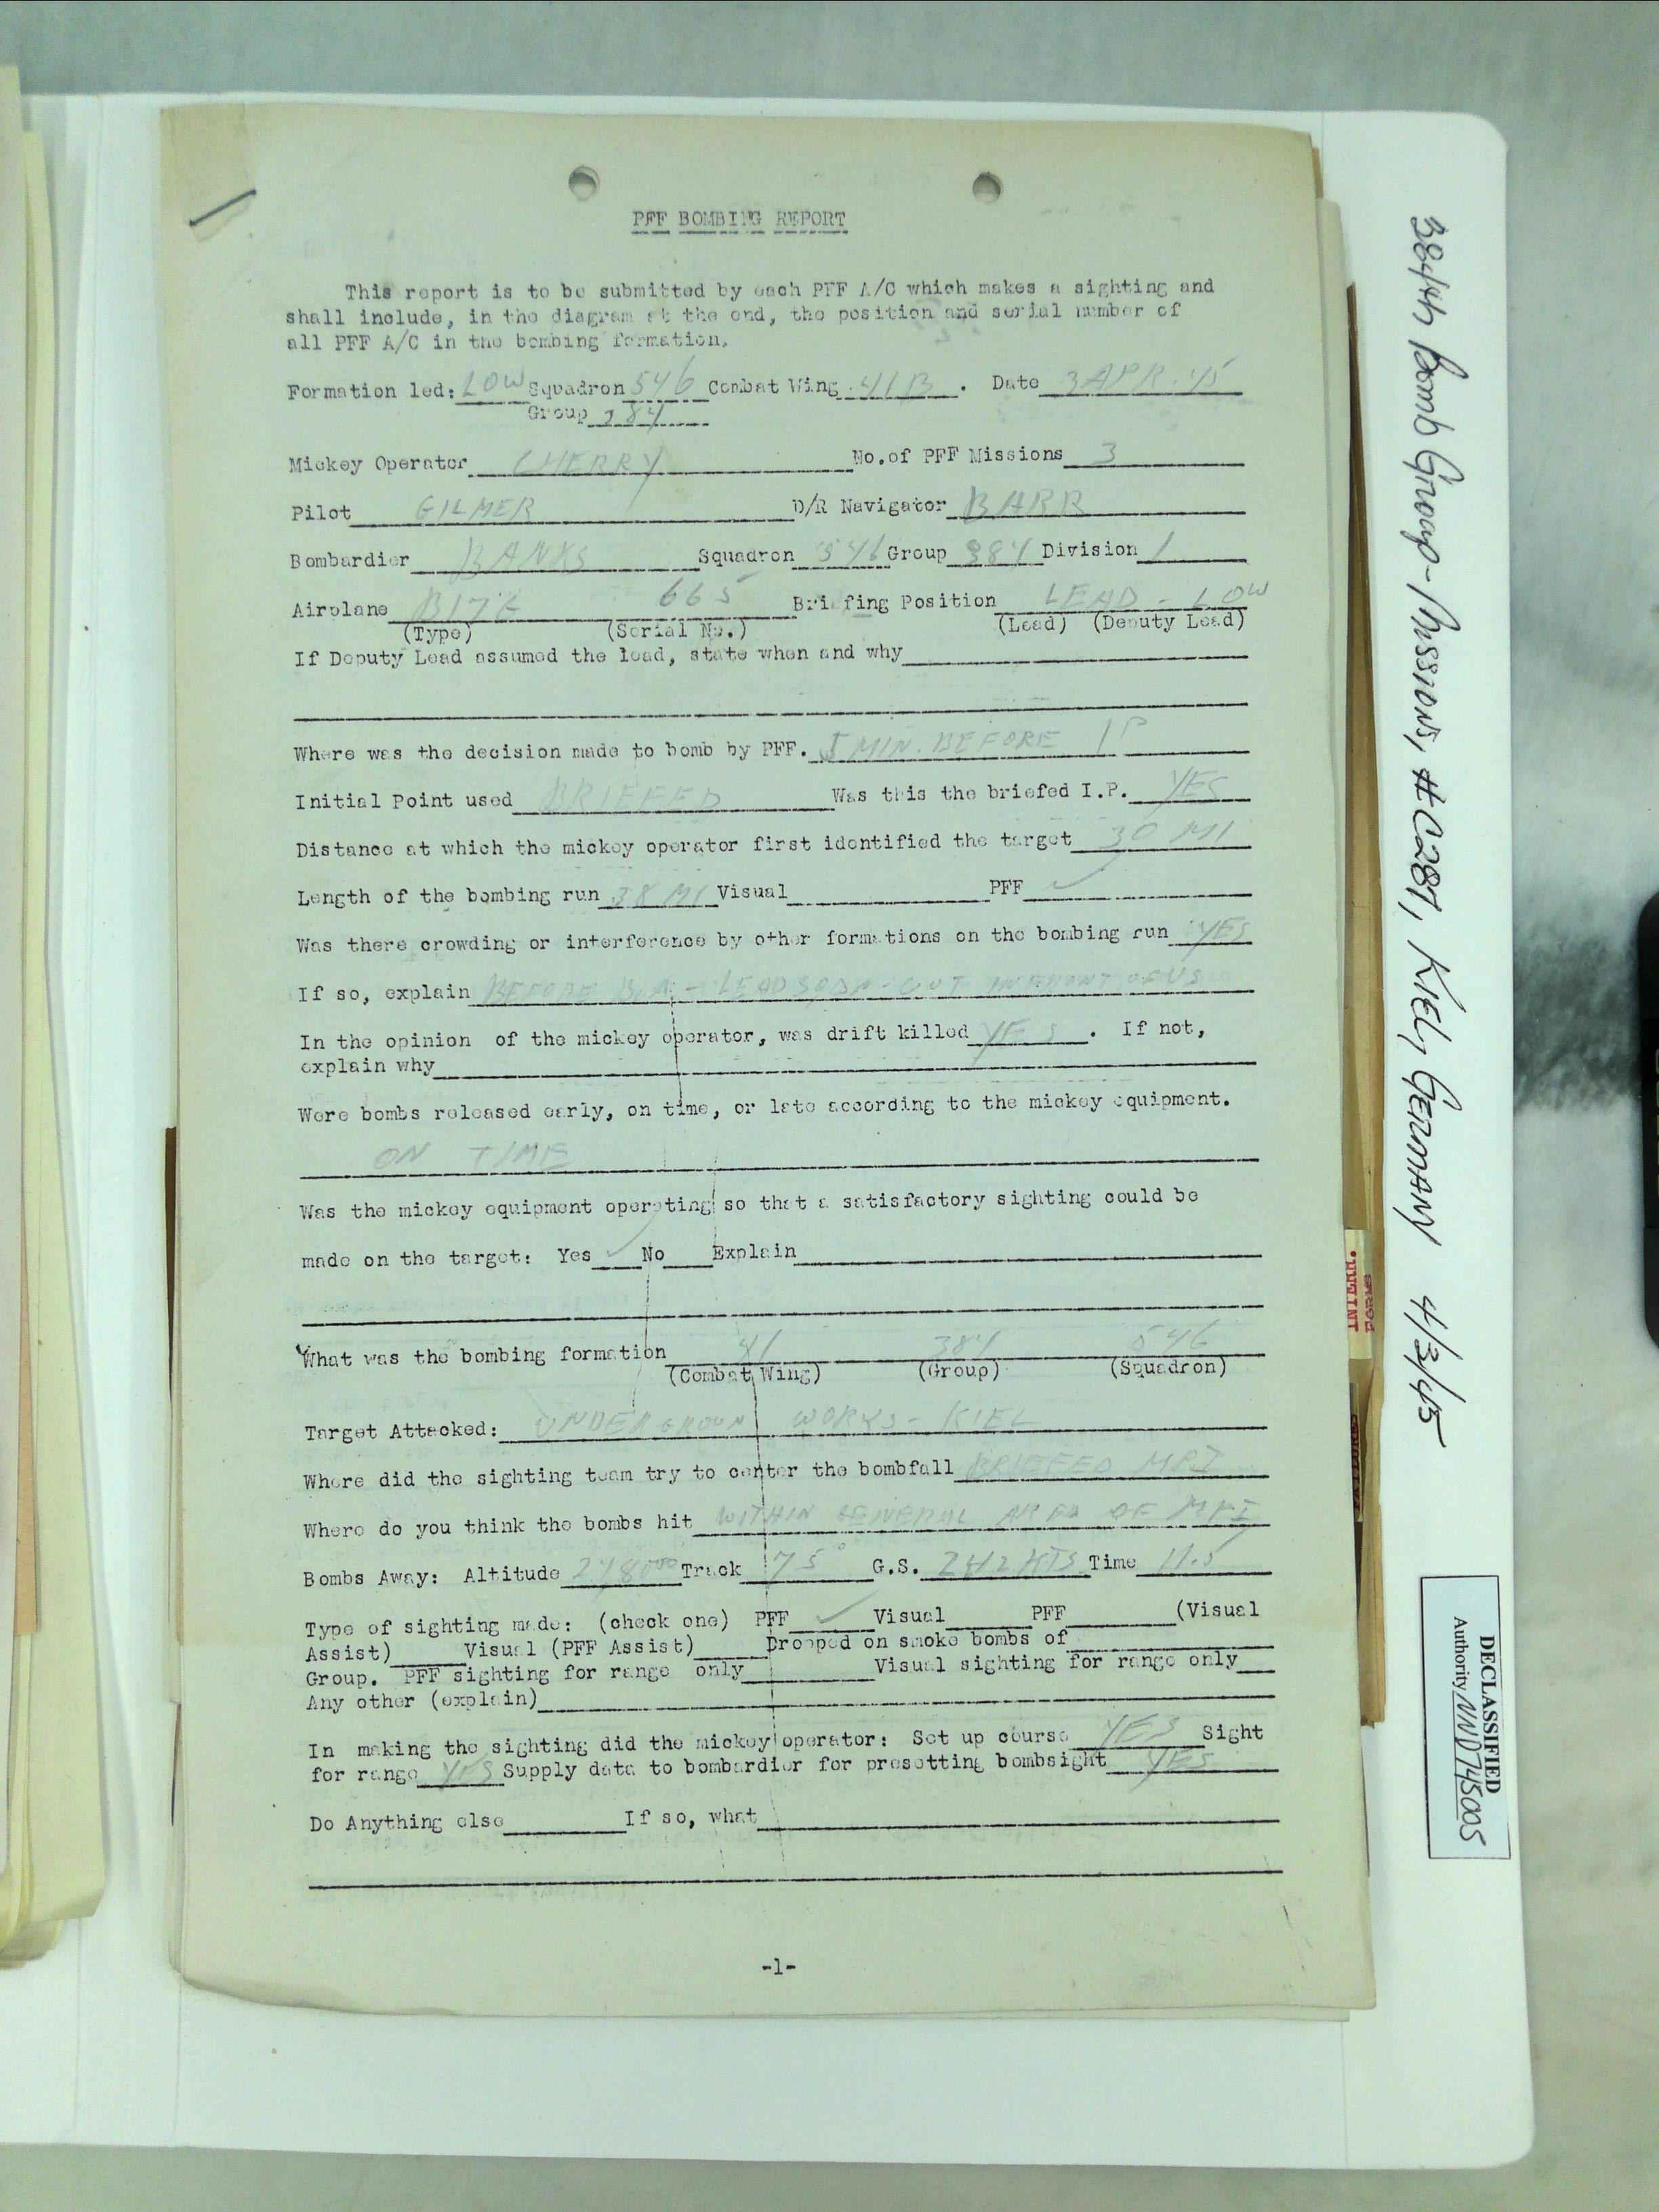 PFF BOMBING REPORT
This report is to be submitted by each PFF A/C which makes a sighting and
shall include, in the diagram at the end, the position and serial number of
all PFF A/C in the bombing formation.
Formation led: LOW Squadron 546 Combat Wing 41B. Date 3 APR. 45
Group 384
Mickey Operator CHERRY No.of PFF Missions 3
Pilot GILMER D/R Navigator BARR
Bombardier BANKS Squadron 546 Group 384 Division 1
Airplane B17G 665 Briefing Position LEAD - LOW
(Type) (Serial No.) (Lead) (Deputy Lead)
If Deputy Lead assumed the lead, state when and why
Where was the decision made to bomb by PFF. 5 MIN. BEFORE IP
Initial Point used BRIEFED Was this the briefed I.P. YES
Distance at which the mickey operator first identified the target 30 MI
Length of the bombing run 38 MI Visual PFF ✓
Was there crowding or interference by other formations on the bombing run YES
If so, explain BEFORE B.A. - LEAD SQDN. CUT IN FRONT OF US
In the opinion of the mickey operator, was drift killed YES. If not,
explain why
Were bombs released early, on time, or late according to the mickey equipment.
ON TIME
Was the mickey equipment operating so that a satisfactory sighting could be
made on the target: Yes ✓ No Explain
What was the bombing formation 41 384 546
(Combat Wing) (Group) (Squadron)
Target Attacked: UNDERGROUN WORKS - KIEL
Where did the sighting team try to center the bombfall BRIEFED MPI
Where do you think the bombs hit WITHIN GENERAL AREA OF MPI
Bombs Away: Altitude Track 75° G.S. 242 KTS Time 11.5
Type of sighting made: (check one) PFF ✓ Visual PFF (Visual
Assist) Visual (PFF Assist) Dropped on smoke bombs of
Group. PFF sighting for range only Visual sighting for range only
Any other (explain)
In making the sighting did the mickey operator: Set up course YES Sight
for range YES Supply data to bombardier for presetting bombsight YES
Do Anything else If so, what
-1-
384th Bomb Group - Mission, #C281, KIEL, GERMANY 4/3/45
INTERR.
FORMS
DECLASSIFIED
Authority NND745005